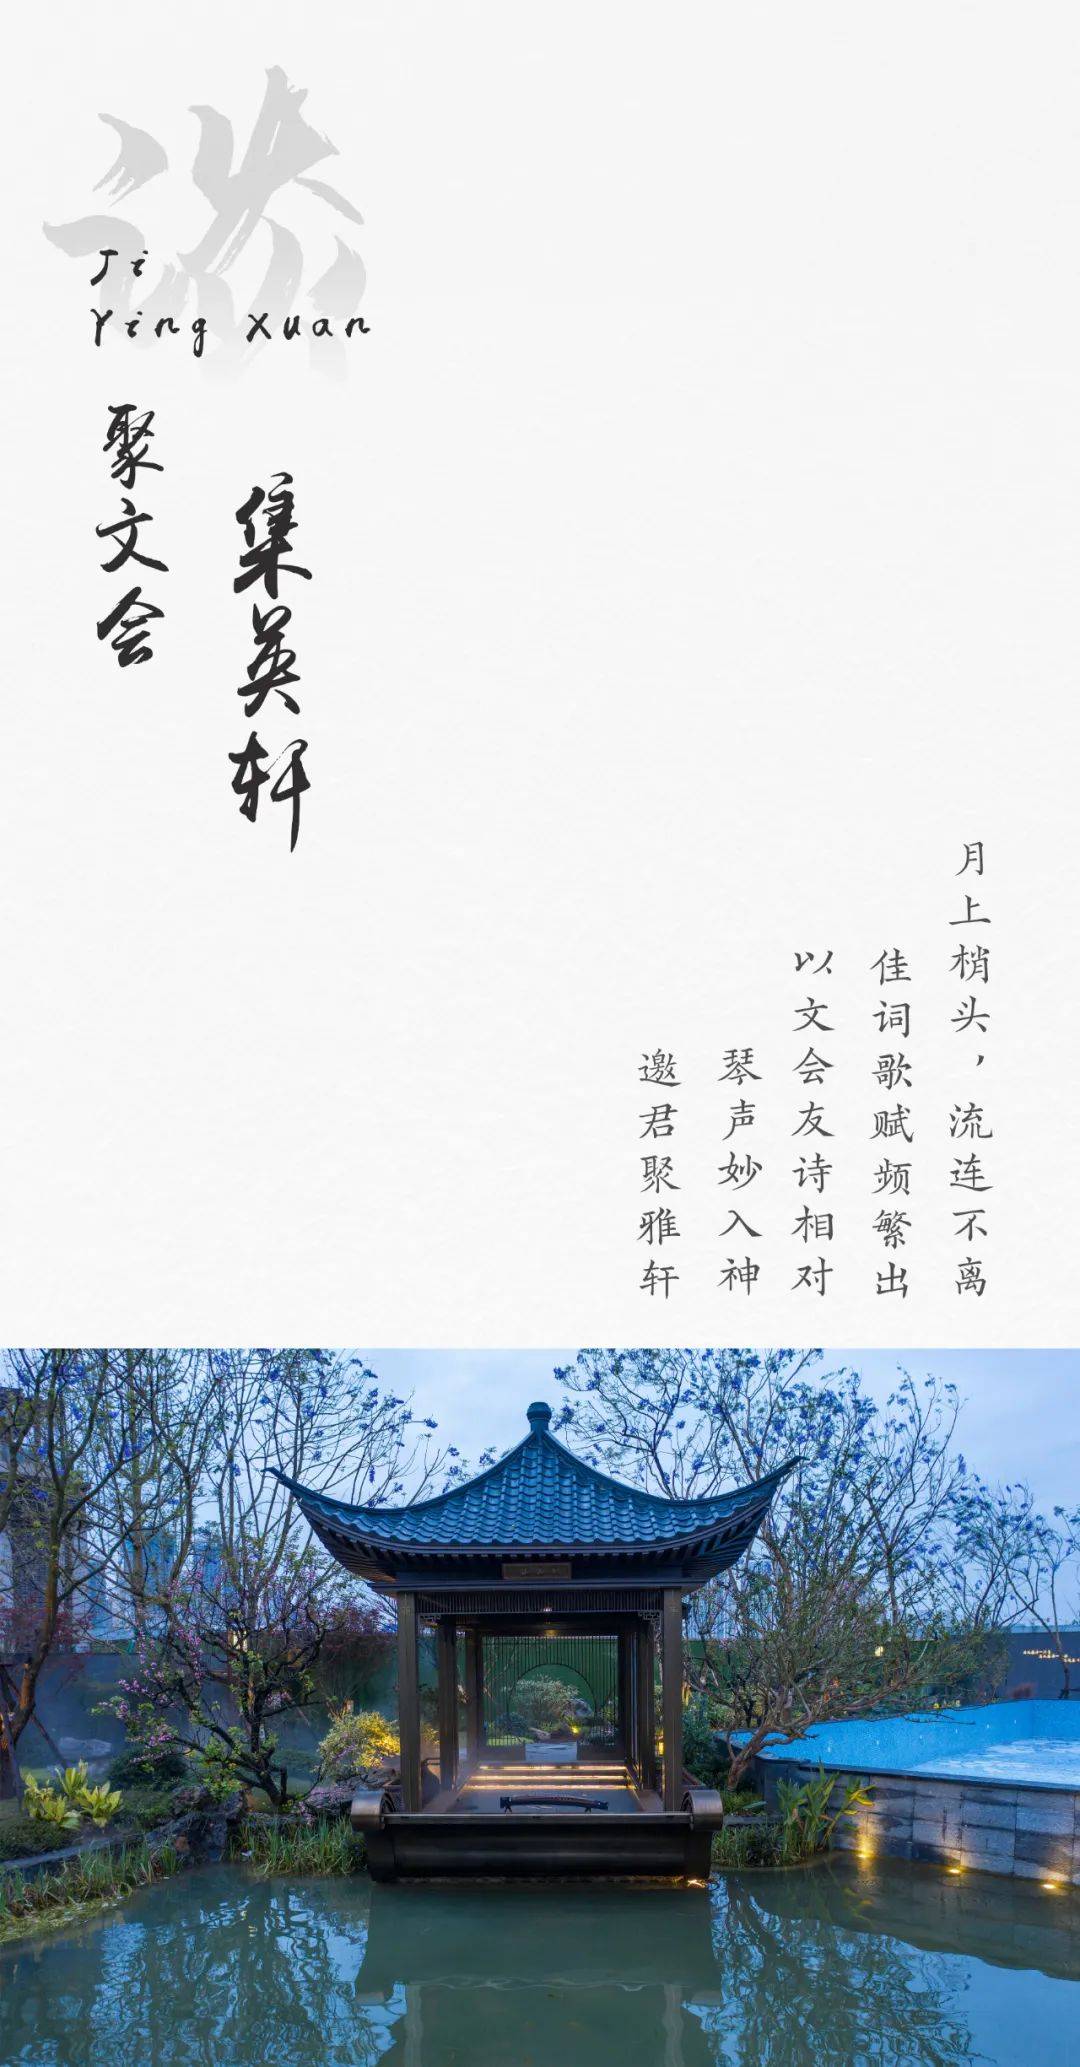 Ji
Ying Xuan
集英轩
聚文会
月上梢头，流连不离
佳词歌赋频繁出
以文会友诗相对
琴声妙入神
邀君聚雅轩